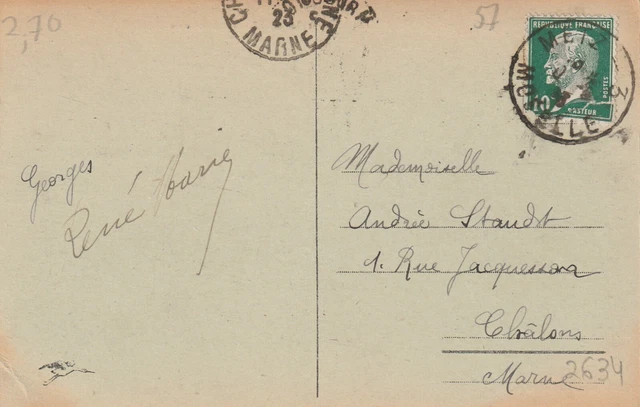 2,70
23
MARNE
57
RÉPUBLIQUE FRANÇAISE
POSTES
10
PASTEUR
METZ 3
MOSELLE
Georges
René
Mademoiselle
Andrée Staudt
1. Rue Jacquesson
Châlons
Marne
2634